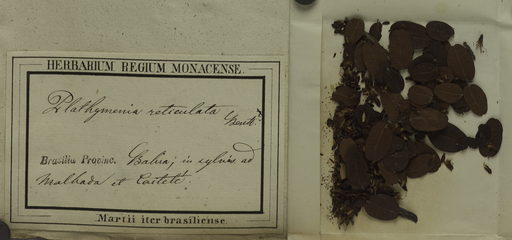 HERBARIUM REGIUM MONACENSE.
Plathymenia reticulata Benth.
Brasilia Provinc. Bahia; in sylvis ad
Malhada et Caeteté.
Martii iter brasiliense.